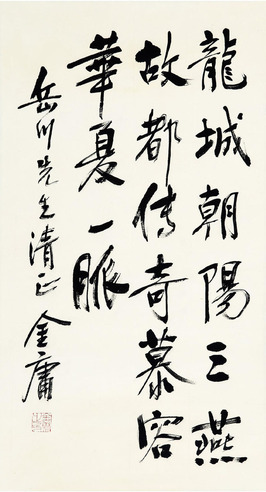 龍城朝陽三燕
故都傳奇慕容
華夏一脈
岳川先生清正
金庸